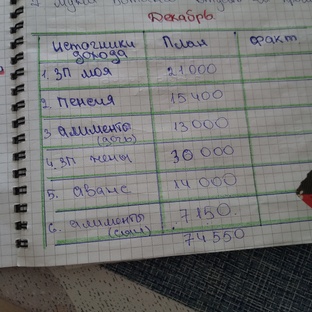 Декабрь
источники дохода План факт
1. ЗП моя 21000
2. Пенсия 15400
3. алименты (дочь) 13000
4. ЗП жены 30 000
5. аванс 14 000
6. алименты (сын) 7150
74550